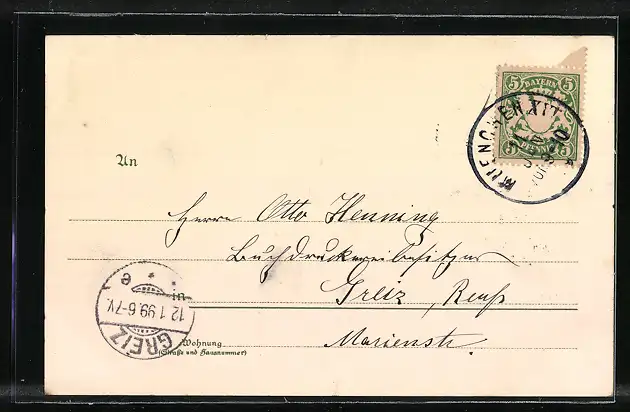 5 BAYERN 5
5 PFENNIG 5
MUENCHEN XII
An
Herrn Otto Henning
Buchdruckereibesitzer
in
Greiz, Reuß
Wohnung
(Straße und Hausnummer)
Marienstr.
GREIZ
12 1 99 6-7V.
e